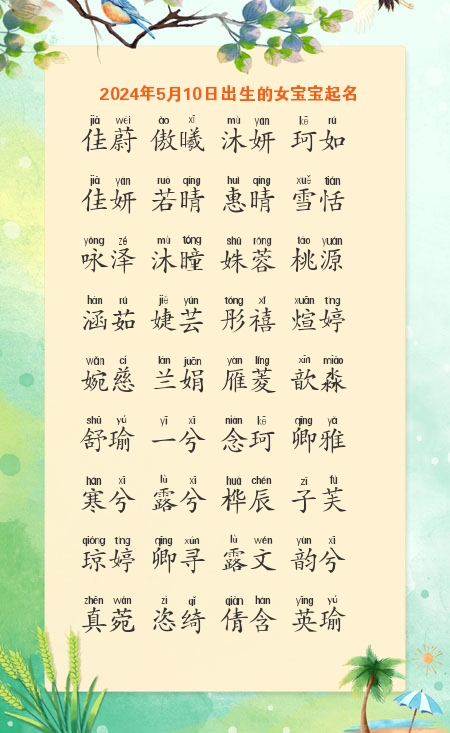 2024年5月10日出生的女宝宝起名
jiā wèi ào xī mù yán kē rú
佳蔚 傲曦 沐妍 珂如
jiā yán ruò qíng huì qíng xuě tián
佳妍 若晴 惠晴 雪恬
yǒng zé mù tóng shū róng táo yuán
咏泽 沐瞳 姝蓉 桃源
hán rú jié yún tóng xǐ xuān tíng
涵茹 婕芸 彤禧 煊婷
wǎn cí lán juān yàn líng xīn miǎo
婉慈 兰娟 雁菱 歆淼
shū yú yī xī niàn kē qīng yǎ
舒瑜 一兮 念珂 卿雅
hán xī lù xī huà chén zǐ fú
寒兮 露兮 桦辰 子芙
qióng tíng qīng xún lù wén yùn xī
琼婷 卿寻 露文 韵兮
zhēn wǎn zì qǐ qiàn hán yīng yú
真菀 恣绮 倩含 英瑜